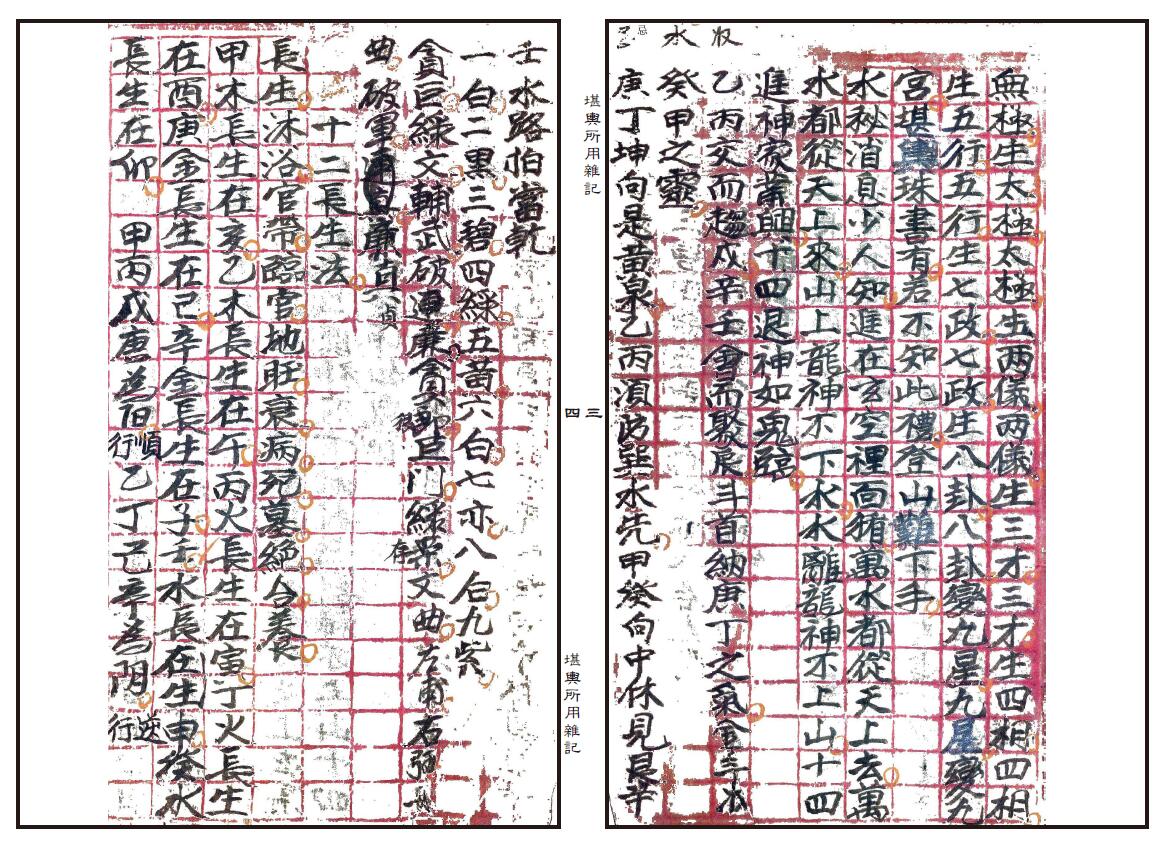 無極生太極太極生両儀両儀生三才三才生四相四相
生五行五行生七政七政生八卦八卦變九星九星變九
宮堪輿珠書有君不知此禮登山難下手
水秘消息少人知進在玄空裡面猶萬水都從天上去萬
水都從天上來山上龍神不下水水離龍神不上山十四
進神家業興十四退神如鬼臨
乙丙交而趨戍辛壬會而聚辰斗首納庚丁之氣金羊收
癸甲之靈
水
庚丁坤向是黃泉乙丙須防巽水先甲癸向中休見艮辛
堪輿所用雜記
三
四
堪輿所用雜記
壬水路怕當乾
一白二黑三碧四綠五黃六白七亦八白九紫
貪巨綠文輔武破軍廉貪郎巨門綠存文曲左甫右弼
曲破軍廉貞
十二長生法
長生沐浴官帶臨官地旺衰病死墓絕今養長
甲木長生在亥乙木長生在午丙火長生在寅丁火長生
在酉庚金長生在己辛金長生在子壬水長在生申癸水
長生在卯 甲丙戊庚為陽順行乙丁己辛為陰逆行